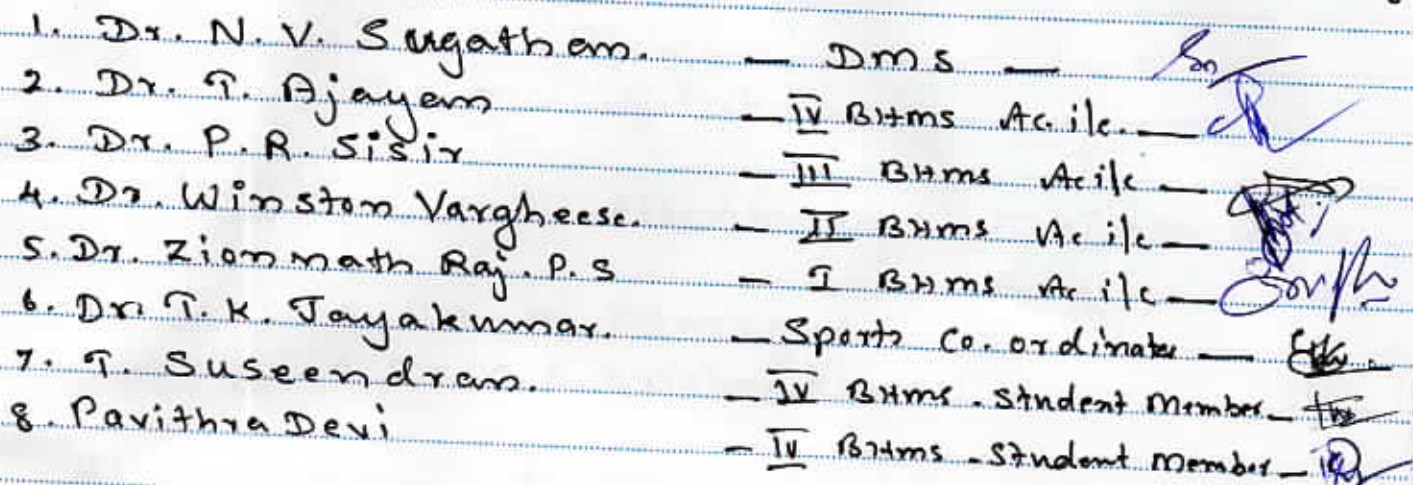 1. Dr. N. V. Sugathan. - DMS -
2. Dr. T. Ajayan - IV BHMS Ac. i/c. -
3. Dr. P. R. Sisir - III BHMS Ac i/c -
4. Dr. Winston Vargheese. - II BHMS Ac i/c -
5. Dr. Zionnath Raj. P. S - I BHMS Ac i/c -
6. Dr. T. K. Jayakumar. - Sports Co. ordinator -
7. T. Suseendran. - IV BHMS - Student Member -
8. Pavithra Devi - IV BHMS - Student Member -